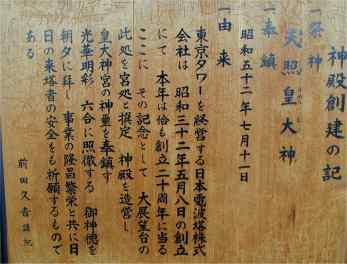 神殿創建の記
一 祭神
天照皇大神
一 奉鎮
昭和五十二年七月十一日
一 由来
東京タワーを経営する日本電波塔株式
会社は 昭和三十二年五月八日の創立
にて 本年は恰も創立二十周年に当る
ここに その記念として 大展望台の
此処を宮処と撰定 神殿を造営し
皇大神宮の神璽を奉鎮す
光華明彩 六合に照徹する 御神徳を
朝夕に拝し 事業の隆昌繁栄と共に日
日の来塔者の安全をも祈願するもので
ある
前田久吉謹記